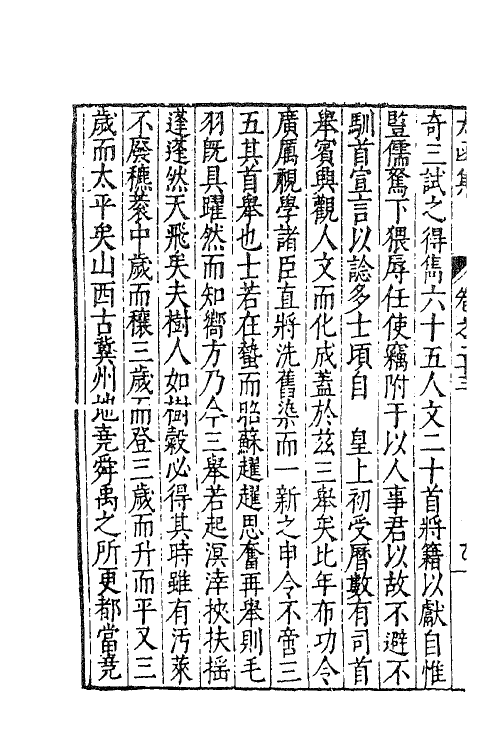 太函集 卷之二十三
奇三試之得雋六十五人文二十首將籍以獻自惟
豎儒駑下猥辱任使竊附于以人事君以故不避不
馴首宣言以諗多士頃自 皇上初受曆數有司首
舉賓興觀人文而化成蓋於茲三舉矣比年布功令
廣厲視學諸臣直將洗舊染而一新之申令不啻三
五其首舉也士若在蟄而昭蘇趯趯思奮再舉則毛
羽既具躍然而知嚮方乃今三舉若起溟涬挾扶搖
蓬蓬然天飛矣夫樹人如樹穀必得其時雖有汚萊
不廢穮蓘中歲而穰三歲而登三歲而升而平又三
歲而太平矣山西古冀州地堯舜禹之所更都當堯